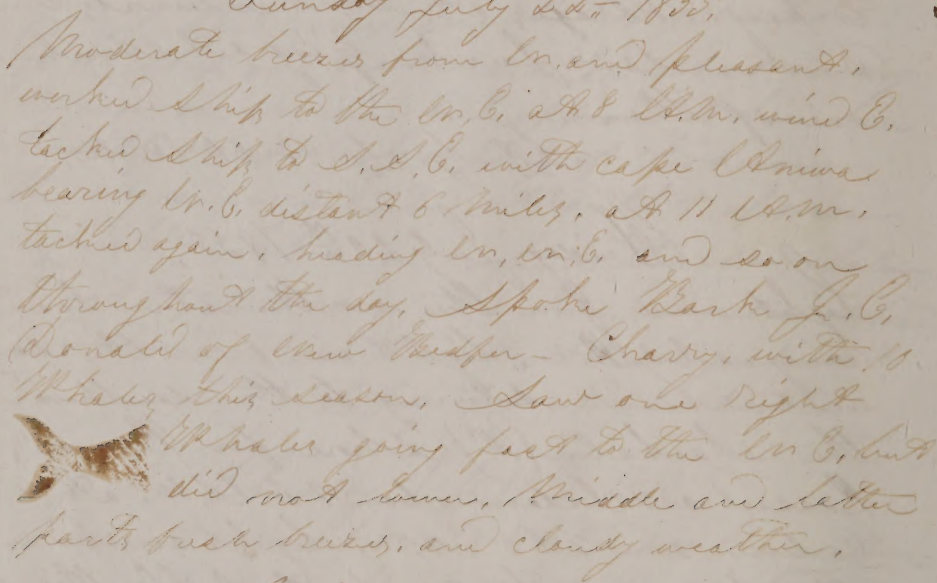 Sunday July 22nd 185
Moderate breezes from N. and pleasant.
worked ship to the N. E. at 8 A.M. wind E.
tacked ship to S. S. E. with cape Aniwa
bearing N. E. distant 6 miles. at 11 A.m.
tacked again. heading N. N. E. and so on
throughout the day. Spoke Bark J. E.
Donald of New Bedfor - Charry. with 10
Whales this season. Saw one right
Whales going fast to the N E. but
did not lower. Middle and latter
parts fresh breezes. and cloudy weather.